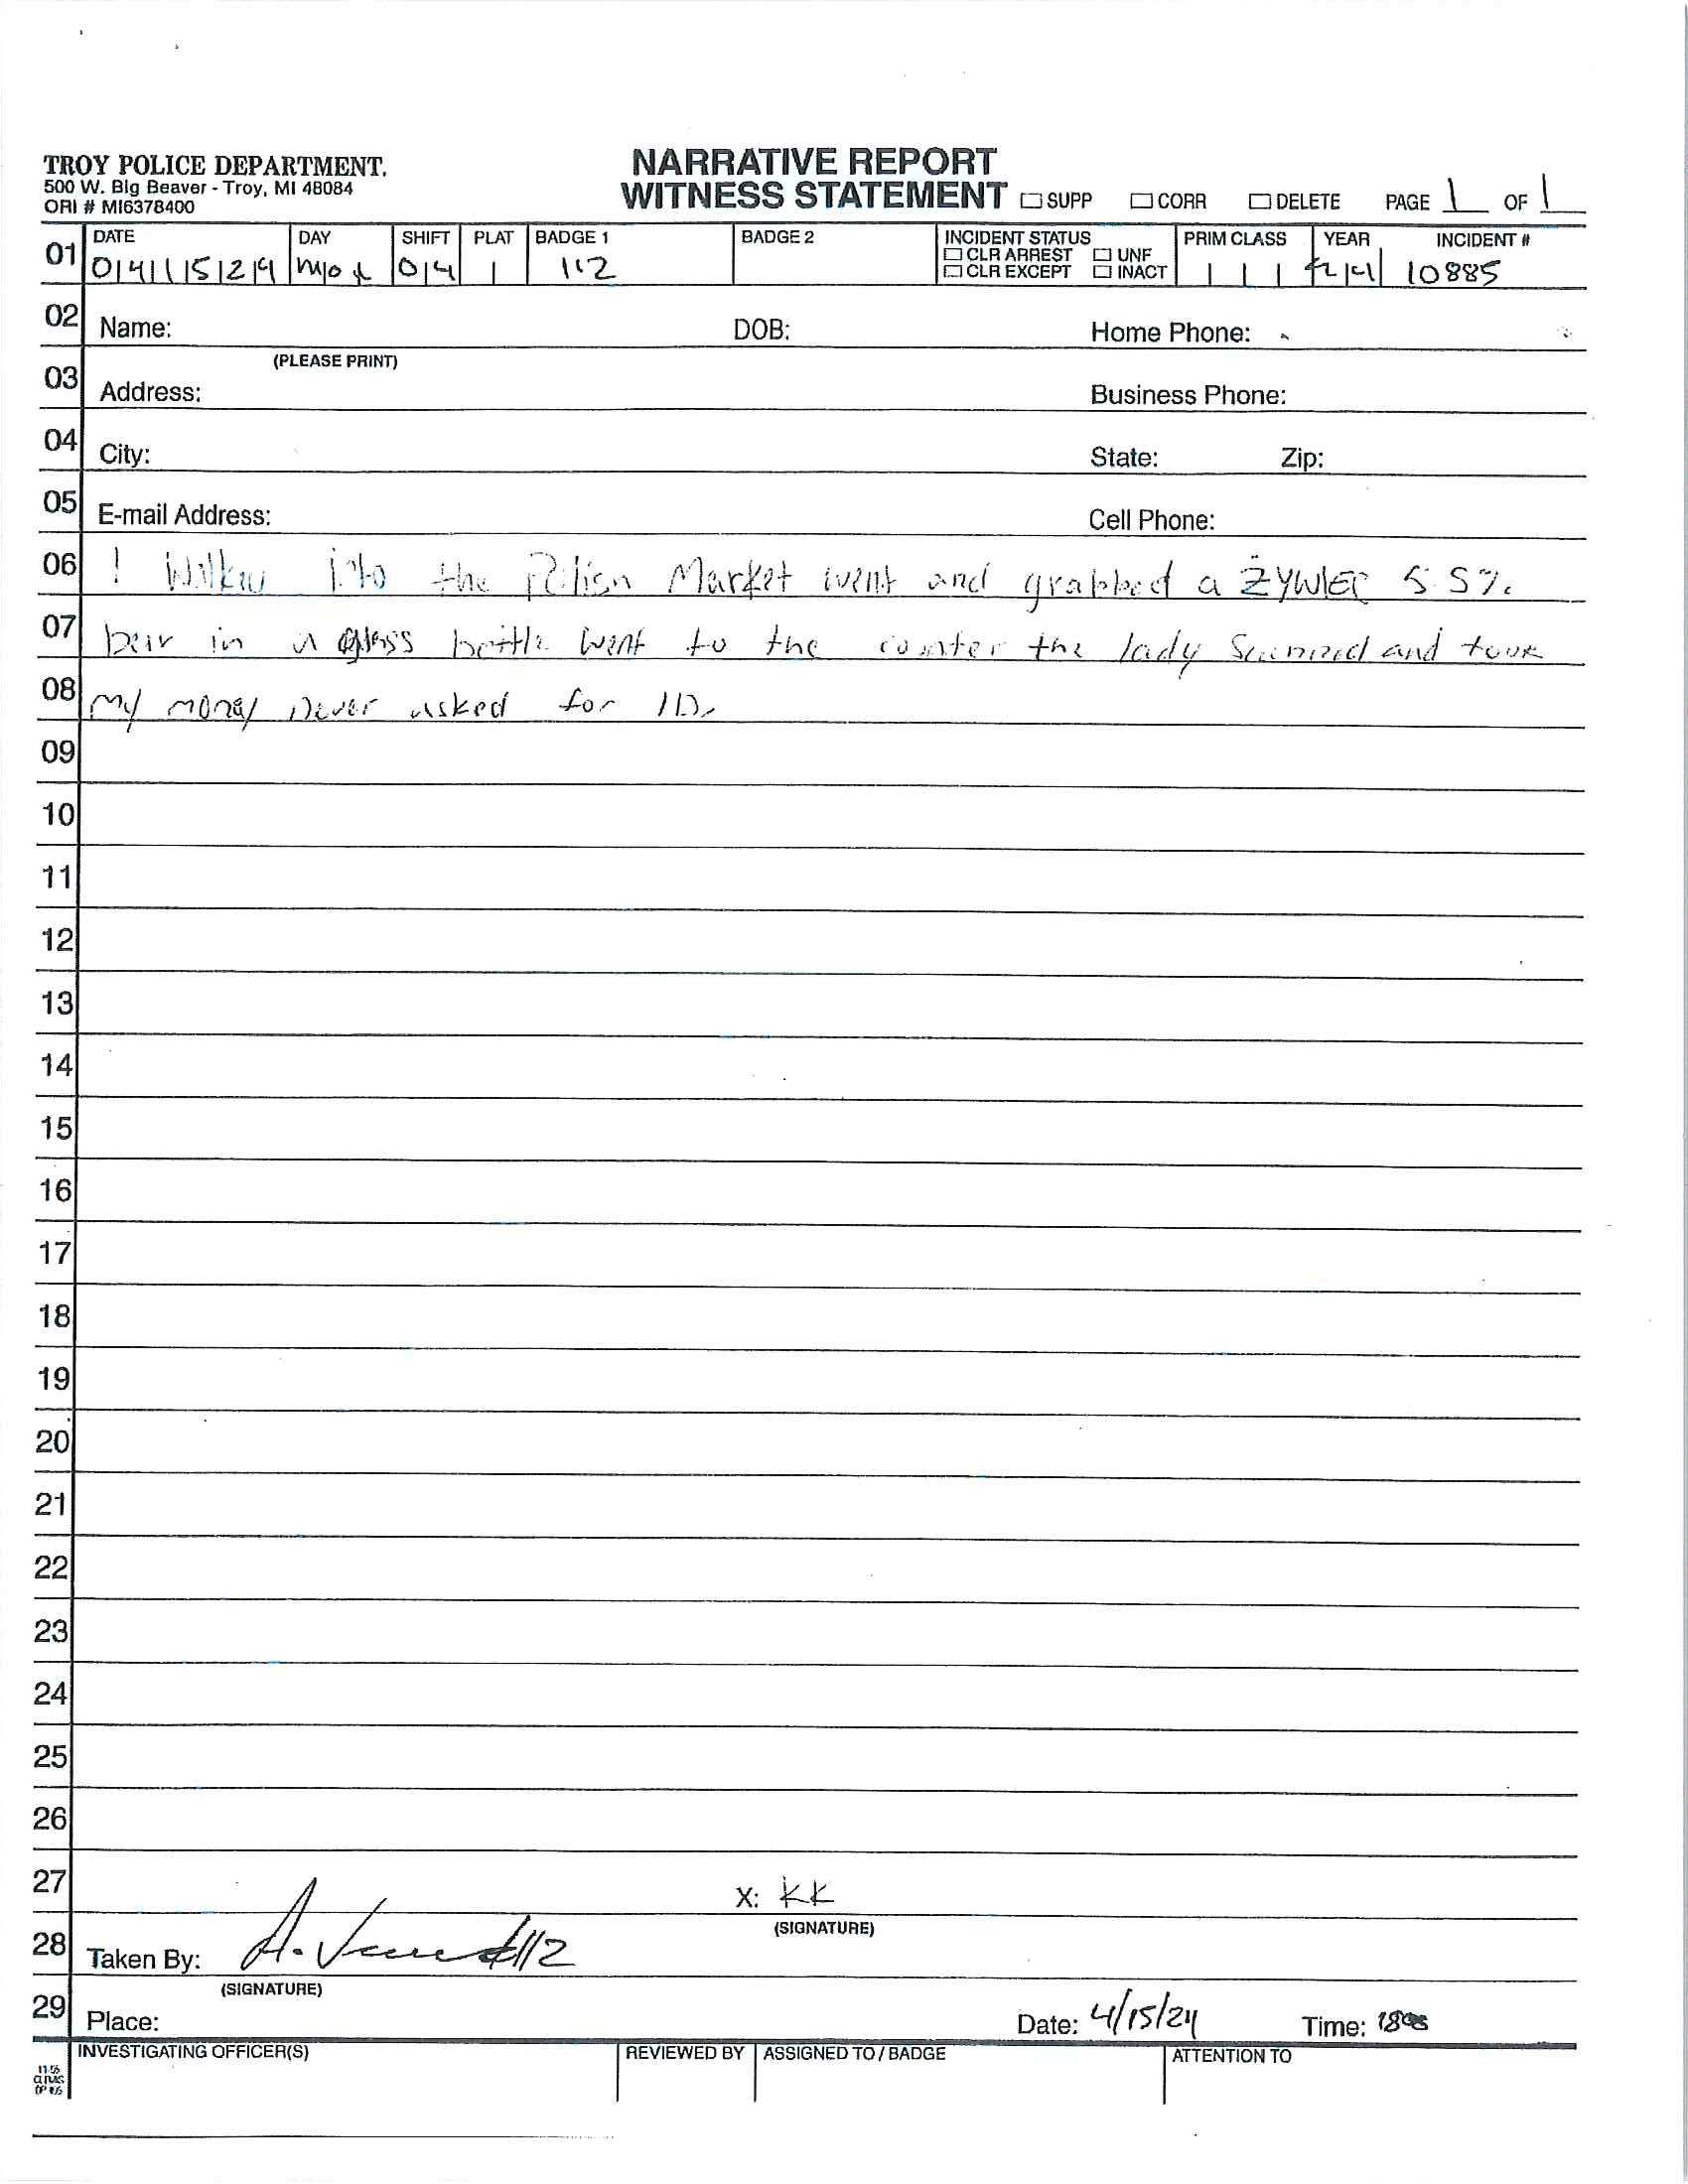 TROY POLICE DEPARTMENT.
500 W. Big Beaver - Troy, MI 48084
ORI # MI6378400
NARRATIVE REPORT
WITNESS STATEMENT SUPP CORR DELETE PAGE 1 OF 1
01 DATE DAY SHIFT PLAT BADGE 1 BADGE 2 INCIDENT STATUS PRIM CLASS YEAR INCIDENT #
CLR ARREST UNF
CLR EXCEPT INACT
04 15 24 04 112 24 10885
02 Name: DOB: Home Phone:
(PLEASE PRINT)
03 Address: Business Phone:
04 City: State: Zip:
05 E-mail Address: Cell Phone:
06 I into the Polish Market went and grabbed a ŻYWIEC 5.5%
07 beir in a glass bottle went to the counter the lady and took
08 my money never asked for ID.
09
10
11
12
13
14
15
16
17
18
19
20
21
22
23
24
25
26
27 X: KK
(SIGNATURE)
28 Taken By: 112
(SIGNATURE)
29 Place: Date: 4/15/24 Time:
INVESTIGATING OFFICER(S) REVIEWED BY ASSIGNED TO / BADGE ATTENTION TO